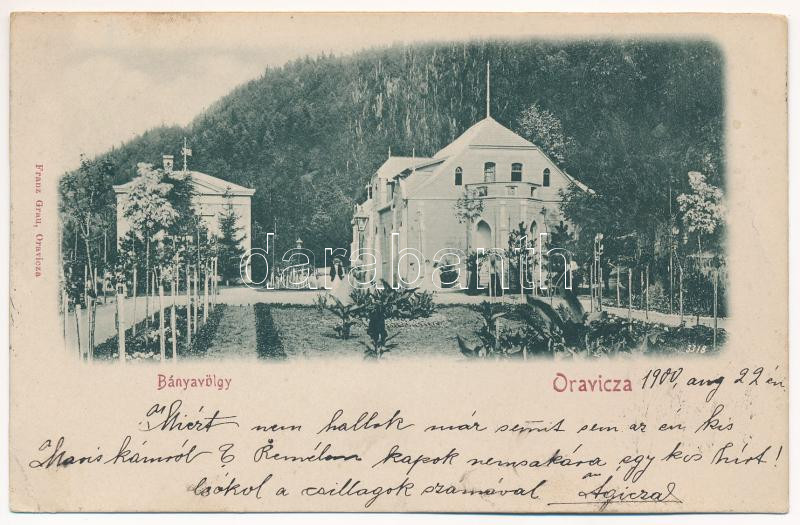 Franz Grau, Oravicza
darabanth
3318
Bányavölgy
Oravicza 1900, aug 22 én
Miért nem hallok már semmit sem az én kis
Maris kámról? Remélem kapok nemsokára egy kis hírt!
Csókol a csillagok számával